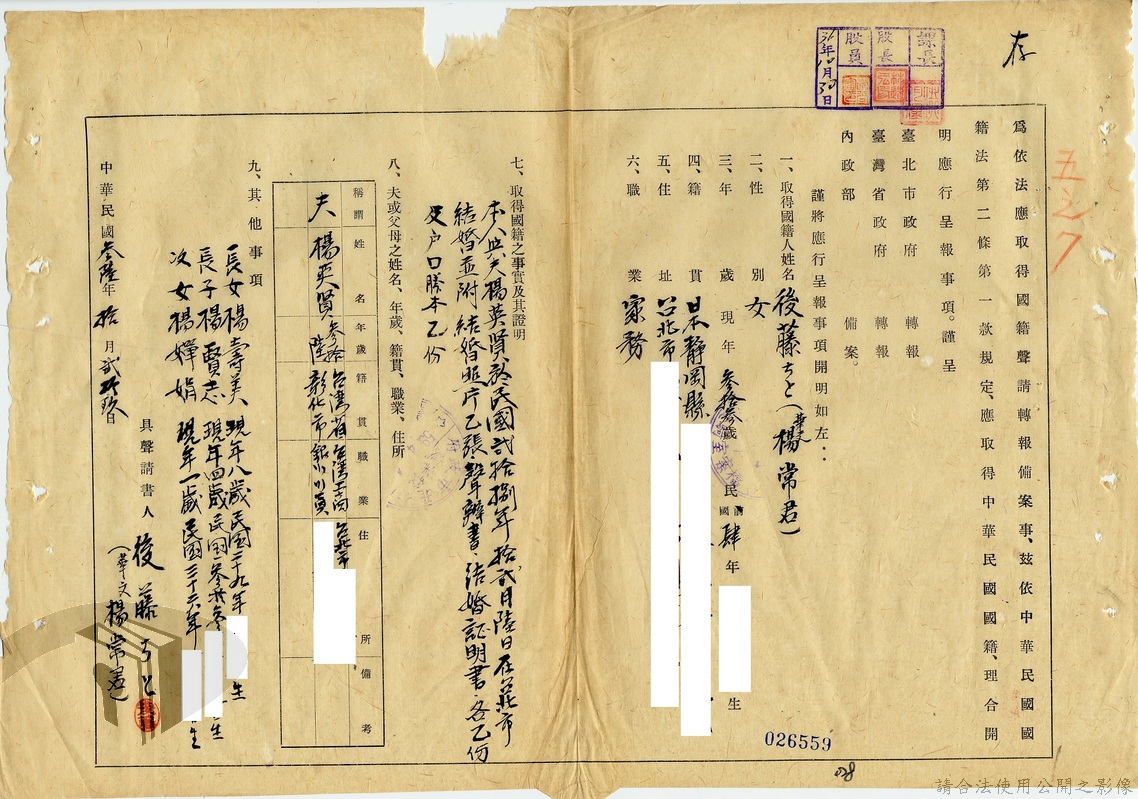 存
五之7
課長
股長
股員
36年10月30日
為依法應取得國籍聲請轉報備案事、茲依中華民國國
籍法第二條第一款規定、應取得中華民國國籍、理合開
明應行呈報事項。謹呈
臺北市政府 轉報
臺灣省政府 轉報
內政部 備案。
謹將應行呈報事項開明如左：
一、取得國籍人姓名 後藤ちと(華文楊常君)
二、性別 女
三、年歲 現年參拾參歲 民國前肆年 生
四、籍貫 日本靜岡縣
五、住址 台北市
六、職業 家務
七、取得國籍之事實及其證明
本人與夫楊英賢於民國貳拾捌年拾貳月陸日在台北市
結婚並附結婚照片乙張聲辦書、結婚証明書、各乙份
及户口謄本乙份
八、夫或父母之姓名、年歲、籍貫、職業、住所
稱謂 姓名 年歲 籍貫 職業 住所 備考
夫 楊英賢 參拾陸 台湾省彰化市 台湾工商銀行行員 台北市
九、其他事項
長女楊壽美 現年八歲 民國二十九年 生
長子楊賢志 現年四歲 民國參拾參 生
次女楊嬋娟 現年一歲 民國三十六年 生
具聲請書人 後藤ちと
(華文楊常君)
中華民國參陸年拾月貳玖日
026559
028
請合法使用公開之影像